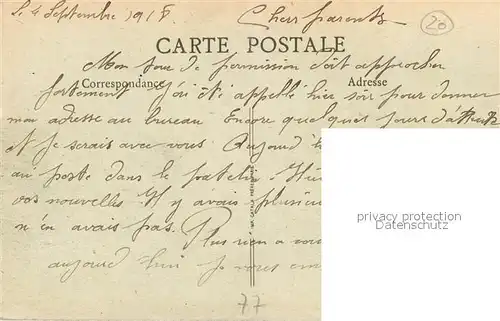 Le 4 Septembre 1918. Chers parents
20
CARTE POSTALE
Mon jour de permission doit approcher
Correspondance Adresse
fortement J'ai été appelé hier soir pour donner
mon adresse au bureau Encore quelques jours d'attente
et Je serais avec vous. Aujourd'
au poste dans le
vos nouvelles. Il y avais plusieurs
n'en avais pas. Plus rien a vous
aujourd'hui Je vous em
77
privacy protection
Datenschutz